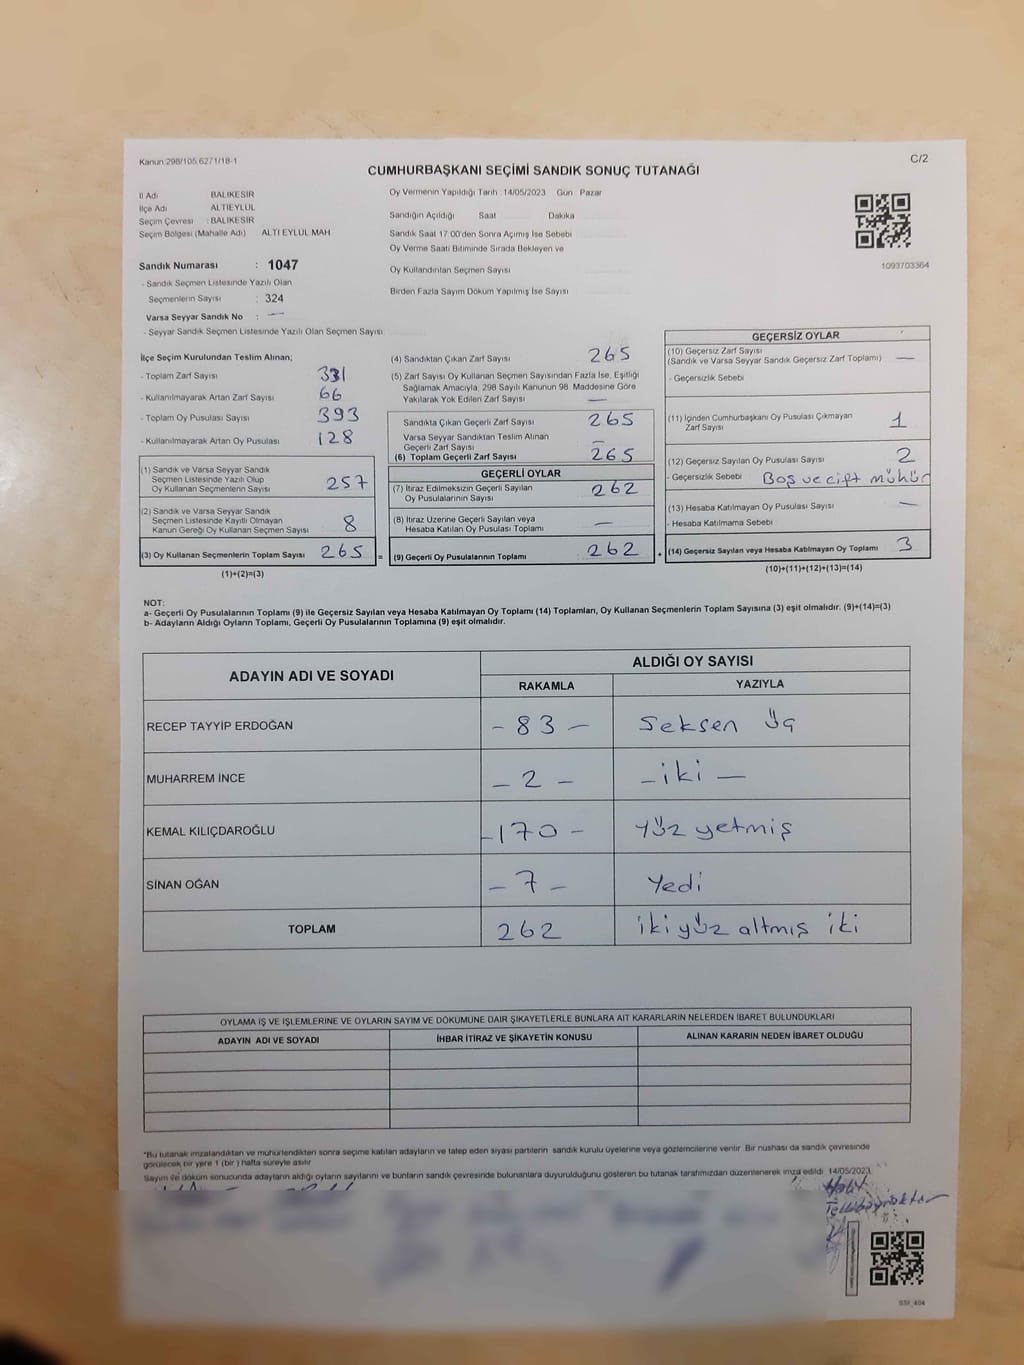 Kanun:298/105,6271/18-1
C/2
CUMHURBAŞKANI SEÇİMİ SANDIK SONUÇ TUTANAĞI
İl Adı BALIKESİR
İlçe Adı ALTIEYLÜL
Seçim Çevresi : BALIKESİR
Seçim Bölgesi (Mahalle Adı) : ALTI EYLÜL MAH
Sandık Numarası : 1047
- Sandık Seçmen Listesinde Yazılı Olan
Seçmenlerin Sayısı : 324
Varsa Seyyar Sandık No : —
- Seyyar Sandık Seçmen Listesinde Yazılı Olan Seçmen Sayısı
Oy Vermenin Yapıldığı Tarih : 14/05/2023 Gün Pazar
Sandığın Açıldığı Saat Dakika
Sandık Saat 17.00'den Sonra Açımış İse Sebebi
Oy Verme Saati Bitiminde Sırada Bekleyen ve
Oy Kullandırılan Seçmen Sayısı
Birden Fazla Sayım Döküm Yapılmış İse Sayısı
1093703364
İlçe Seçim Kurulundan Teslim Alınan;
- Toplam Zarf Sayısı 331
- Kullanılmayarak Artan Zarf Sayısı 66
- Toplam Oy Pusulası Sayısı 393
- Kullanılmayarak Artan Oy Pusulası 128
(1) Sandık ve Varsa Seyyar Sandık
Seçmen Listesinde Yazılı Olup
Oy Kullanan Seçmenlerin Sayısı 257
(2) Sandık ve Varsa Seyyar Sandık
Seçmen Listesinde Kayıtlı Olmayan
Kanun Gereği Oy Kullanan Seçmen Sayısı 8
(3) Oy Kullanan Seçmenlerin Toplam Sayısı 265 =
(1)+(2)=(3)
(4) Sandıktan Çıkan Zarf Sayısı 265
(5) Zarf Sayısı Oy Kullanan Seçmen Sayısından Fazla İse, Eşitliği
Sağlamak Amacıyla, 298 Sayılı Kanunun 98. Maddesine Göre
Yakılarak Yok Edilen Zarf Sayısı —
Sandıkta Çıkan Geçerli Zarf Sayısı 265
Varsa Seyyar Sandıktan Teslim Alınan
Geçerli Zarf Sayısı —
(6) Toplam Geçerli Zarf Sayısı 265
GEÇERLİ OYLAR
(7) İtiraz Edilmeksizin Geçerli Sayılan
Oy Pusulalarının Sayısı 262
(8) İtiraz Üzerine Geçerli Sayılan veya
Hesaba Katılan Oy Pusulası Toplamı —
(9) Geçerli Oy Pusulalarının Toplamı 262 +
GEÇERSİZ OYLAR
(10) Geçersiz Zarf Sayısı
(Sandık ve Varsa Seyyar Sandık Geçersiz Zarf Toplamı) —
- Geçersizlik Sebebi
(11) İçinden Cumhurbaşkanı Oy Pusulası Çıkmayan
Zarf Sayısı 1
(12) Geçersiz Sayılan Oy Pusulası Sayısı 2
- Geçersizlik Sebebi Boş ve çift mühür
(13) Hesaba Katılmayan Oy Pusulası Sayısı —
- Hesaba Katılmama Sebebi
(14) Geçersiz Sayılan veya Hesaba Katılmayan Oy Toplamı 3
(10)+(11)+(12)+(13)=(14)
NOT:
a- Geçerli Oy Pusulalarının Toplamı (9) ile Geçersiz Sayılan veya Hesaba Katılmayan Oy Toplamı (14) Toplamları, Oy Kullanan Seçmenlerin Toplam Sayısına (3) eşit olmalıdır. (9)+(14)=(3)
b- Adayların Aldığı Oyların Toplamı, Geçerli Oy Pusulalarının Toplamına (9) eşit olmalıdır.
ADAYIN ADI VE SOYADI
ALDIĞI OY SAYISI
RAKAMLA YAZIYLA
RECEP TAYYİP ERDOĞAN - 83 - Seksen Üç
MUHARREM İNCE - 2 - - iki -
KEMAL KILIÇDAROĞLU - 170 - Yüz yetmiş
SİNAN OĞAN - 7 - Yedi
TOPLAM 262 iki yüz altmış iki
OYLAMA İŞ VE İŞLEMLERİNE VE OYLARIN SAYIM VE DÖKÜMÜNE DAİR ŞİKAYETLERLE BUNLARA AİT KARARLARIN NELERDEN İBARET BULUNDUKLARI
ADAYIN ADI VE SOYADI İHBAR İTİRAZ VE ŞİKAYETİN KONUSU ALINAN KARARIN NEDEN İBARET OLDUĞU
"Bu tutanak imzalandıktan ve mühürlendikten sonra seçime katılan adayların ve talep eden siyasi partilerin sandık kurulu üyelerine veya gözlemcilerine verilir. Bir nüshası da sandık çevresinde
görülecek bir yere 1 (bir) hafta süreyle asılır
Sayım ve döküm sonucunda adayların aldığı oyların sayılarını ve bunların sandık çevresinde bulunanlara duyurulduğunu gösteren bu tutanak tarafımızdan düzenlenerek imza edildi. 14/05/2023